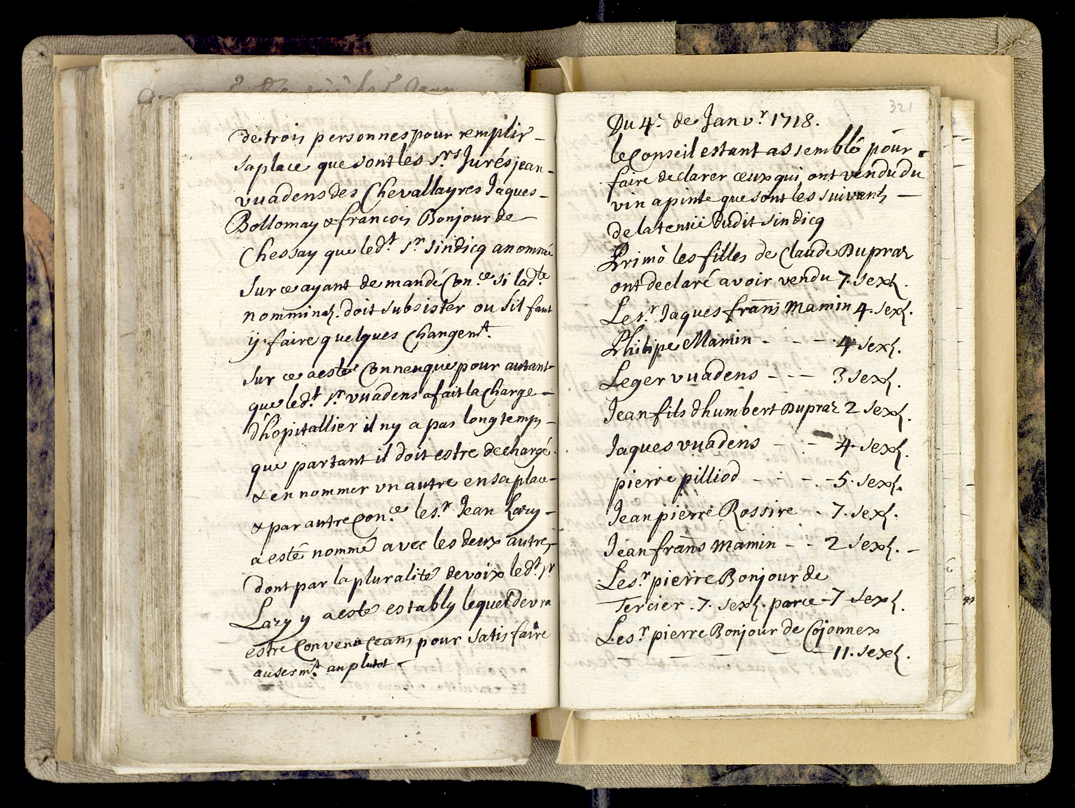 de trois personnes pour remplir
sa place que sont les srs Jurés jean
vuadens des Chevallayres Jaques
Bollomay & francois Bonjour de
Chessay que led.t sr sindicq a nommé
Sur ce ayant demandé Con.ce si lad.te
nomminaõ. doit subsister ou s'il faut
ÿ faire quelques changem.t
Sur ce a esté Conneu que pour autant
que led.t sr vuadens a fait la charge
d'hopitallier il ny a pas longtemps
que partant il doit estre dechargé
& en nommer vn autre en sa place
& par autre Con.ce le sr Jean Lazy
a esté nommé avec les deux autres
dont par la pluralité de voix led.t sr
Lazy y a esté estably lequel devra
estre Convenu Ceans pour satisfaire
a usem.t au plutot
321
Du 4.e de Janv.r 1718.
le Conseil estant assemblé pour
faire declarer ceux qui ont vendu du
vin a pinte que sont les suivants
de la tenüe dudit sindicq
Primò les filles de Claude Dupraz
ont declaré avoir vendu 7. sex.
Le s.r Jaques frans Mamin 4. sex.
Philipe Mamin - - - 4 sex.
Leger vuadens - - - 3 sex.
Jean fils d'humbert Dupraz 2 sex.
Jaques vuadens - - 4 sex.
pierre pilliod - - 5. sex.
Jean pierre Rossire - 7. sex.
Jean frans Mamin - - 2 sex. -
Le s.r pierre Bonjour de
Tercier . 7. sex. parce - 7 sex.
Le s.r pierre Bonjour de Cojonnex
11. sex.